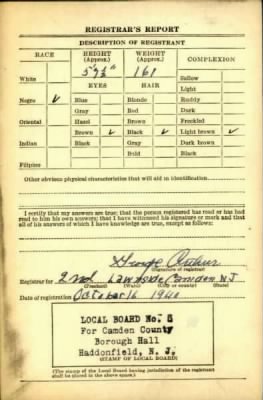 REGISTRAR'S REPORT
DESCRIPTION OF REGISTRANT
RACE HEIGHT (Approx.) WEIGHT (Approx.) COMPLEXION
5'7½" 161
White EYES HAIR Sallow
Light
Negro ✓ Blue Blonde Ruddy
Gray Red Dark
Oriental Hazel Brown Freckled
Brown ✓ Black ✓ Light brown ✓
Indian Black Gray Dark brown
Bald Black
Filipino
Other obvious physical characteristics that will aid in identification
I certify that my answers are true; that the person registered has read or has had read to him his own answers; that I have witnessed his signature or mark and that all of his answers of which I have knowledge are true, except as follows:
George Arthur
(Signature of registrar)
Registrar for 2nd Lawnside Camden N.J.
(Precinct) (Ward) (City or county) (State)
Date of registration October 16 1940
LOCAL BOARD No. 5
For Camden County
Borough Hall
Haddonfield, N. J.
(STAMP OF LOCAL BOARD)
(The stamp of the Local Board having jurisdiction of the registrant
shall be placed in the above space.)